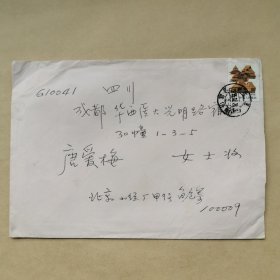 610041 四川
成都 华西医大光明路
30幢 1-3-5
唐爱梅 女士收
北京 小经厂甲
100009